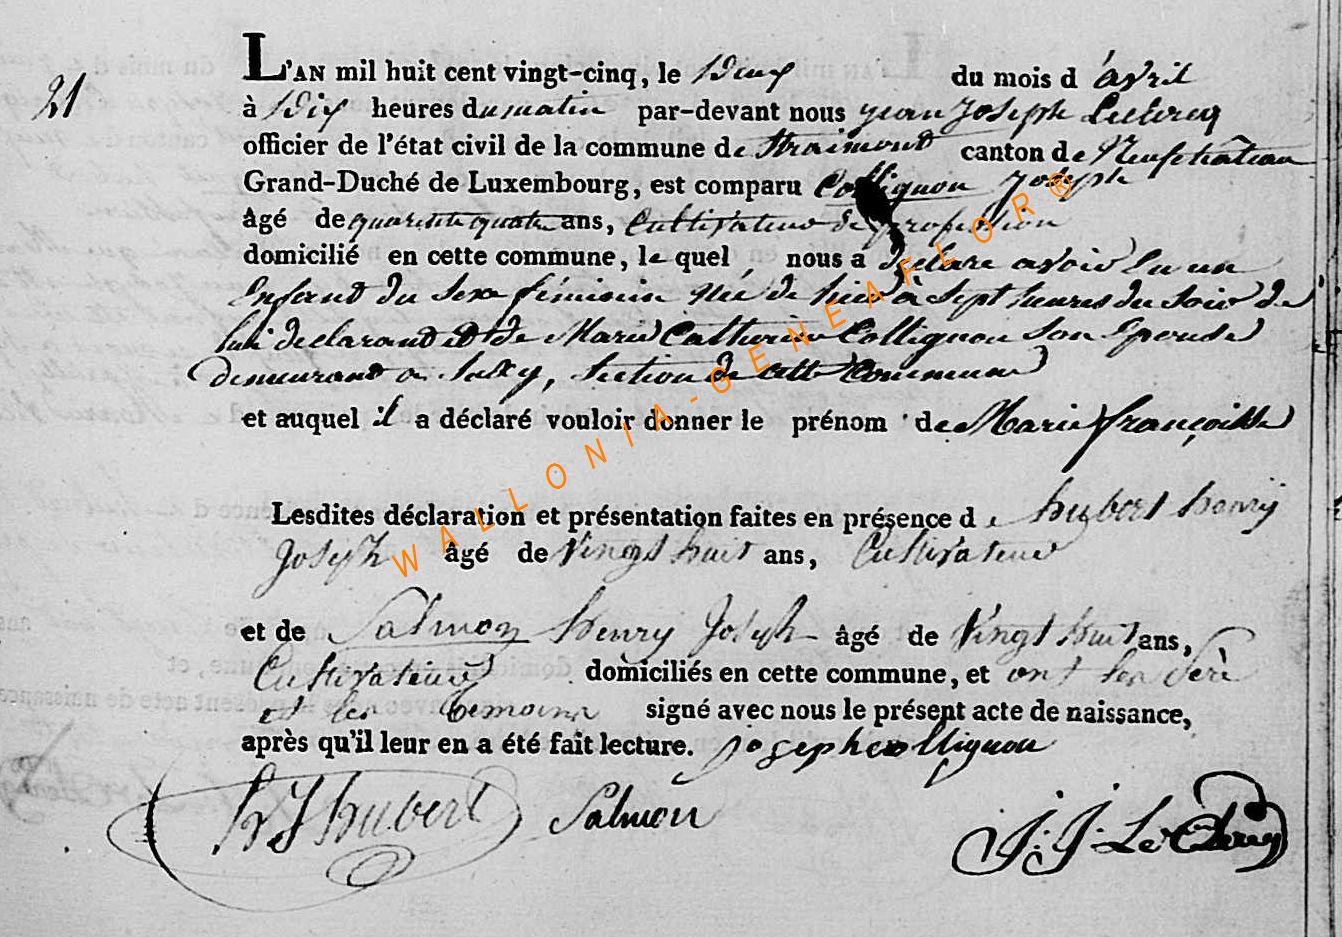 21
L'AN mil huit cent vingt-cinq, le Deux du mois d'avril
à Dix heures du matin par-devant nous jean Joseph Leclercq
officier de l'état civil de la commune de Straimont canton de Neufchâteau
Grand-Duché de Luxembourg, est comparu Collignon Joseph
âgé de quarente quatre ans, Cultivateur de profession
domicilié en cette commune, le quel, nous a déclaré avoir Eu un
Enfant du Sexe féminin Née de hier à Sept heures du Soir de
lui déclarant et de Marie Catherine Collignon Son Epouse
demeurant a Suxy, Section de cette Commune
et auquel il a déclaré vouloir donner le prénom de Marie françoisse
Lesdites déclaration et présentation faites en présence de hubert henrÿ
Joseph âgé de Vingt huit ans, Cultivateur
et de Salmon henry Joseph âgé de Vingt huit ans,
Cultivateur domiciliés en cette commune, et ont les Peré
et les temoins signé avec nous le présent acte de naissance,
après qu'il leur en a été fait lecture. joseph collignon
h J hubert Salmon J. J. Le Clercq
WALLONIA-GENEAFLOR®